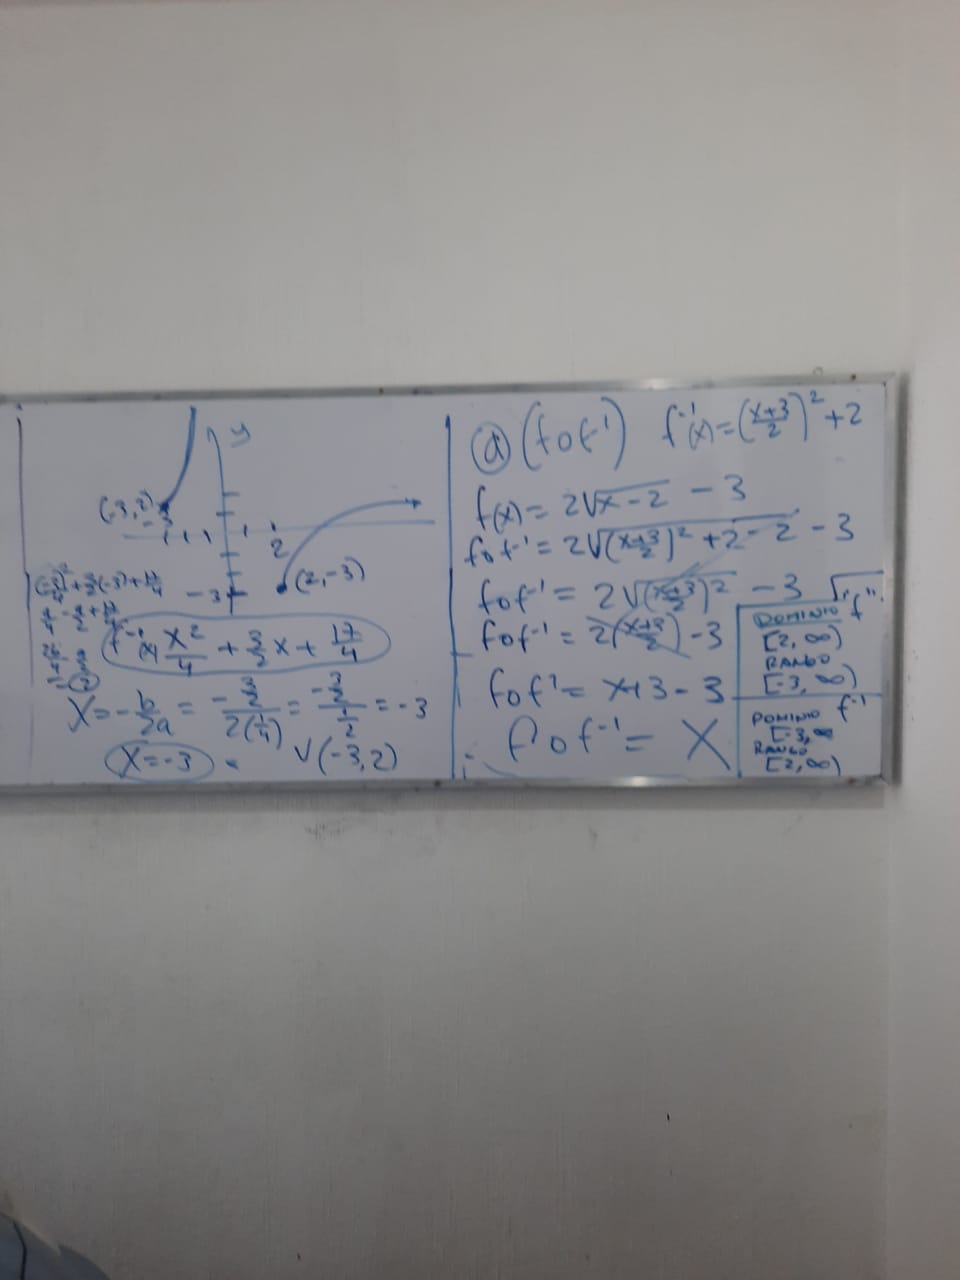 y
(-3,2)
-3
2
(2,-3)
-3
(-3)²/4 + 3/2(-3) + 17/4
9/4 - 9/2 + 17/4
2
f⁻¹(x) x²/4 + 3/2 x + 17/4
X = -b/2a = -3/2 / 2(1/4) = -3/2 / 1/2 = -3
X = -3
V(-3,2)
ⓐ (fof⁻¹) f⁻¹(x) = ((x+3)/2)² + 2
f(x) = 2√(x-2) - 3
fof⁻¹ = 2√(((x+3)/2)² + 2 - 2) - 3
fof⁻¹ = 2√(((x+3)/2)²) - 3
fof⁻¹ = 2((x+3)/2) - 3
fof⁻¹ = x+3-3
fof⁻¹ = X
"f"
DOMINIO
[2, ∞)
RANGO
[-3, ∞)
f⁻¹
DOMINIO
[-3, ∞
RANGO
[2, ∞)